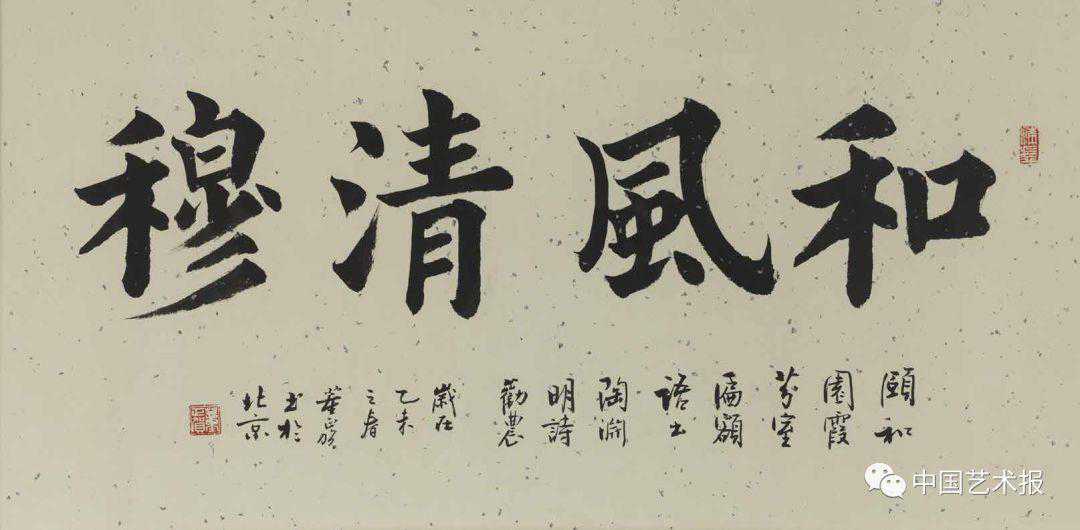 和風清穆
頤和
園霞
芬室
匾額
語出
陶淵
明詩
勸農
歲在
乙未
之春
书於
北京
中国艺术报